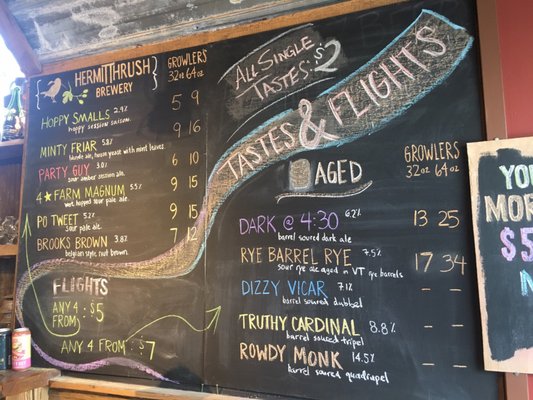 HERMIT THRUSH
BREWERY
GROWLERS
32oz 64oz
HOPPY SMALLS 2.9%
hoppy session saison.
5 9
MINTY FRIAR 5.8%
blonde ale, house yeast with mint leaves.
9 16
PARTY GUY 3.0%
sour amber session ale.
6 10
4★FARM MAGNUM 5.5%
wet hopped sour pale ale.
9 15
PO TWEET 5.2%
sour pale ale.
9 15
BROOKS BROWN 3.8%
belgian style, nut brown.
7 12
FLIGHTS
ANY 4
FROM : $5
ANY 4 FROM : $7
ALL SINGLE
TASTES: $2
TASTES & FLIGHTS
AGED
GROWLERS
32oz 64oz
DARK @ 4:30 6.2%
barrel soured dark ale
13 25
RYE BARREL RYE 7.5%
sour rye ale aged in VT rye barrels
17 34
DIZZY VICAR 7.1%
barrel soured dubbel
– –
TRUTHY CARDINAL 8.8%
barrel soured tripel
– –
ROWDY MONK 14.5%
barrel soured quadrupel
– –
YOU
MOR
$5